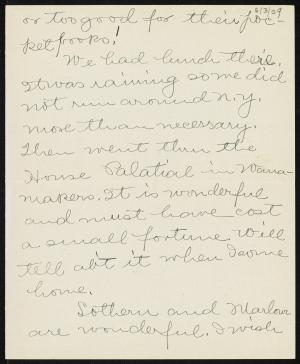 6/3/09
or too good for their poc-
ketbooks!
We had lunch there.
It was raining so we did
not run around N.Y.
more than necessary.
Then went thru the
House Palatial in Wana-
makers. It is wonderful
and must have cost
a small fortune. Will
tell abt it when I come
home.
Sothern and Marlowe
are wonderful. I wish